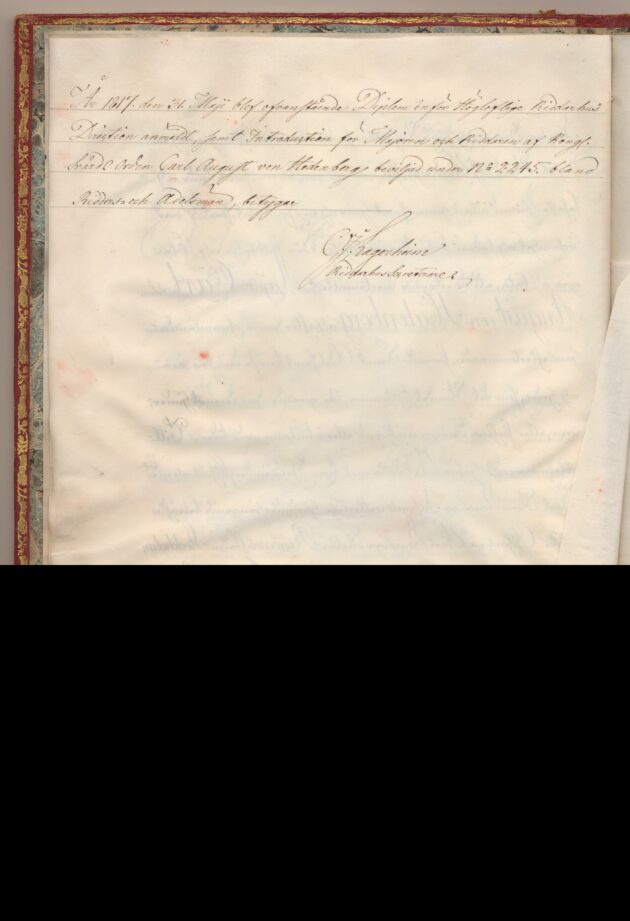 År 1817. den 31. Maji blef ofvanstående Diplom inför Högloflige Riddarhus
Direction anmäldt, samt Introduction för Majoren och Riddaren af Kongl.
Svärds Orden Carl August von Hedenberg beviljad under No 2245. bland
Ridders- och Adelsmän, betygar
Lagerheim
Riddarhus Secreterare